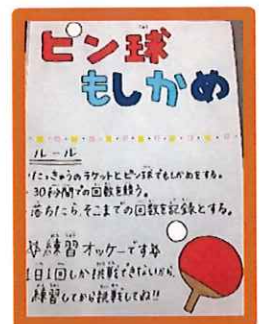 ピン球
もしかめ
ルール
・たっきゅうのラケットとピン球でもしかめをする。
・30秒間での回数を競う。
・落ちたら、そこまでの回数を記録とする。
☆練習オッケーです☆
1日1回しか挑戦できないから、
練習してから挑戦してね!!